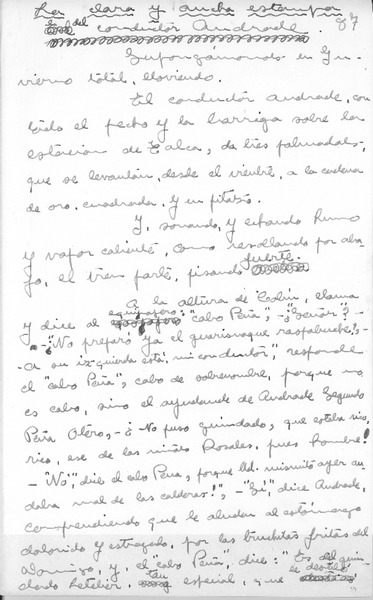 La clara y ancha estampa
del
conductor Andrade.
87
Supongámonos en In-
vierno total, lloviendo.
El conductor Andrade, con
todo el pecho y la barriga sobre la
estación de Talca, da tres palmadas,
que se levantan, desde el vientre, a la cadena
de oro, cuadrada. Y un pitazo.
Y, sonando, y echando humo
y vapor caliente, como resollando por aba-
jo, el tren parte, pisando
fuerte.
A la altura de llama
y dice al "cabo Peña", - "¿Señor?" -
equipajero:
- "¿No preparó ya el guarisnaque raspabuche?, -
"A su izquierda está, mi conductor", responde
el "cabo Peña", cabo de sobrenombre, porque no
es cabo, sino el ayudante de Andrade Segundo
Peña Otero, - ¿No puso guindado, que estaba rico,
rico, ese de las niñitas Rosales, pues hombre?
- "No", dice el cabo Peña, porque Ud. mismito ayer an-
daba mal de las calderas!", - "Sí", dice Andrade,
comprendiendo que le aluden al estómago
dolorido y estragado, por las truchitas fritas del
Domingo, y, el "cabo Peña", dice: "Es del guin-
dado Letelier, especial, que
tan
le destiló